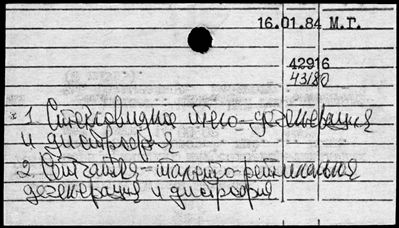 16.01.84 М.Г.
42916
43180
1. Стекловидное тело-дегенерация
и дистрофия
2. Сетчатка-тапето-ретинальная
дегенерация и дистрофия